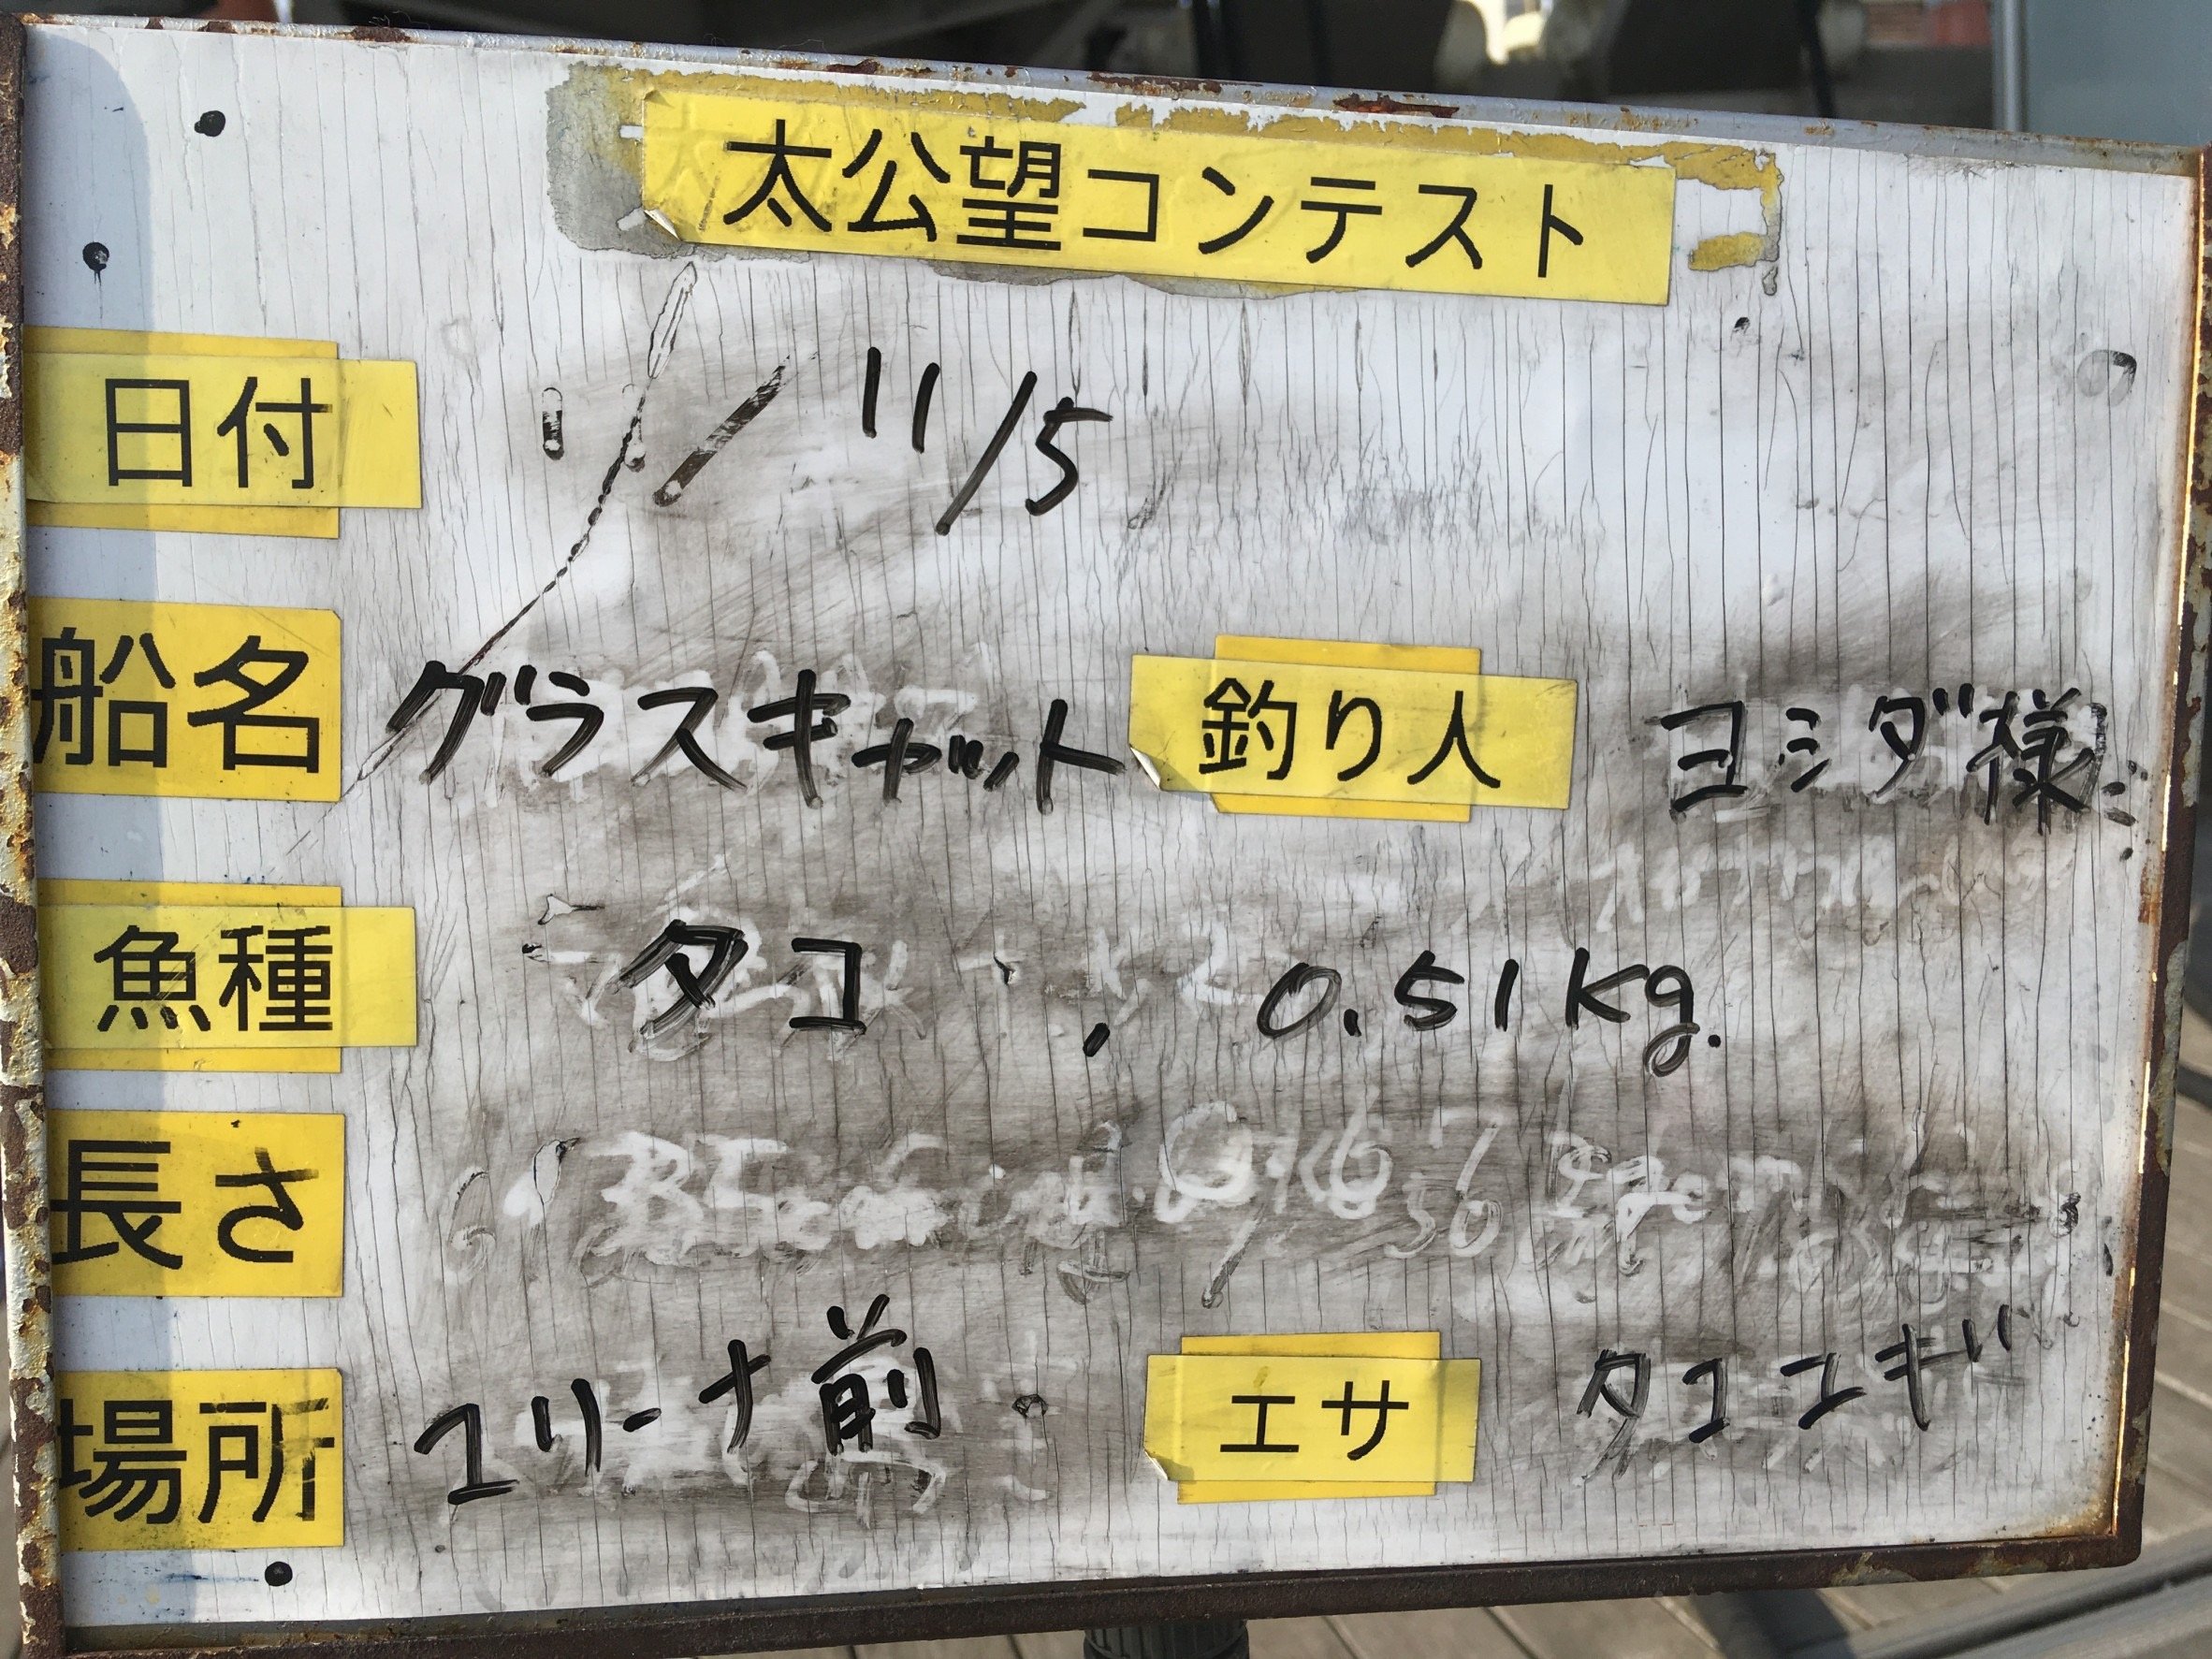 太公望コンテスト
日付 11/5
船名 グラスキャット 釣り人 ヨシダ様
魚種 タコ . 0.51kg.
長さ
場所 ユリーナ前 エサ タコエギ